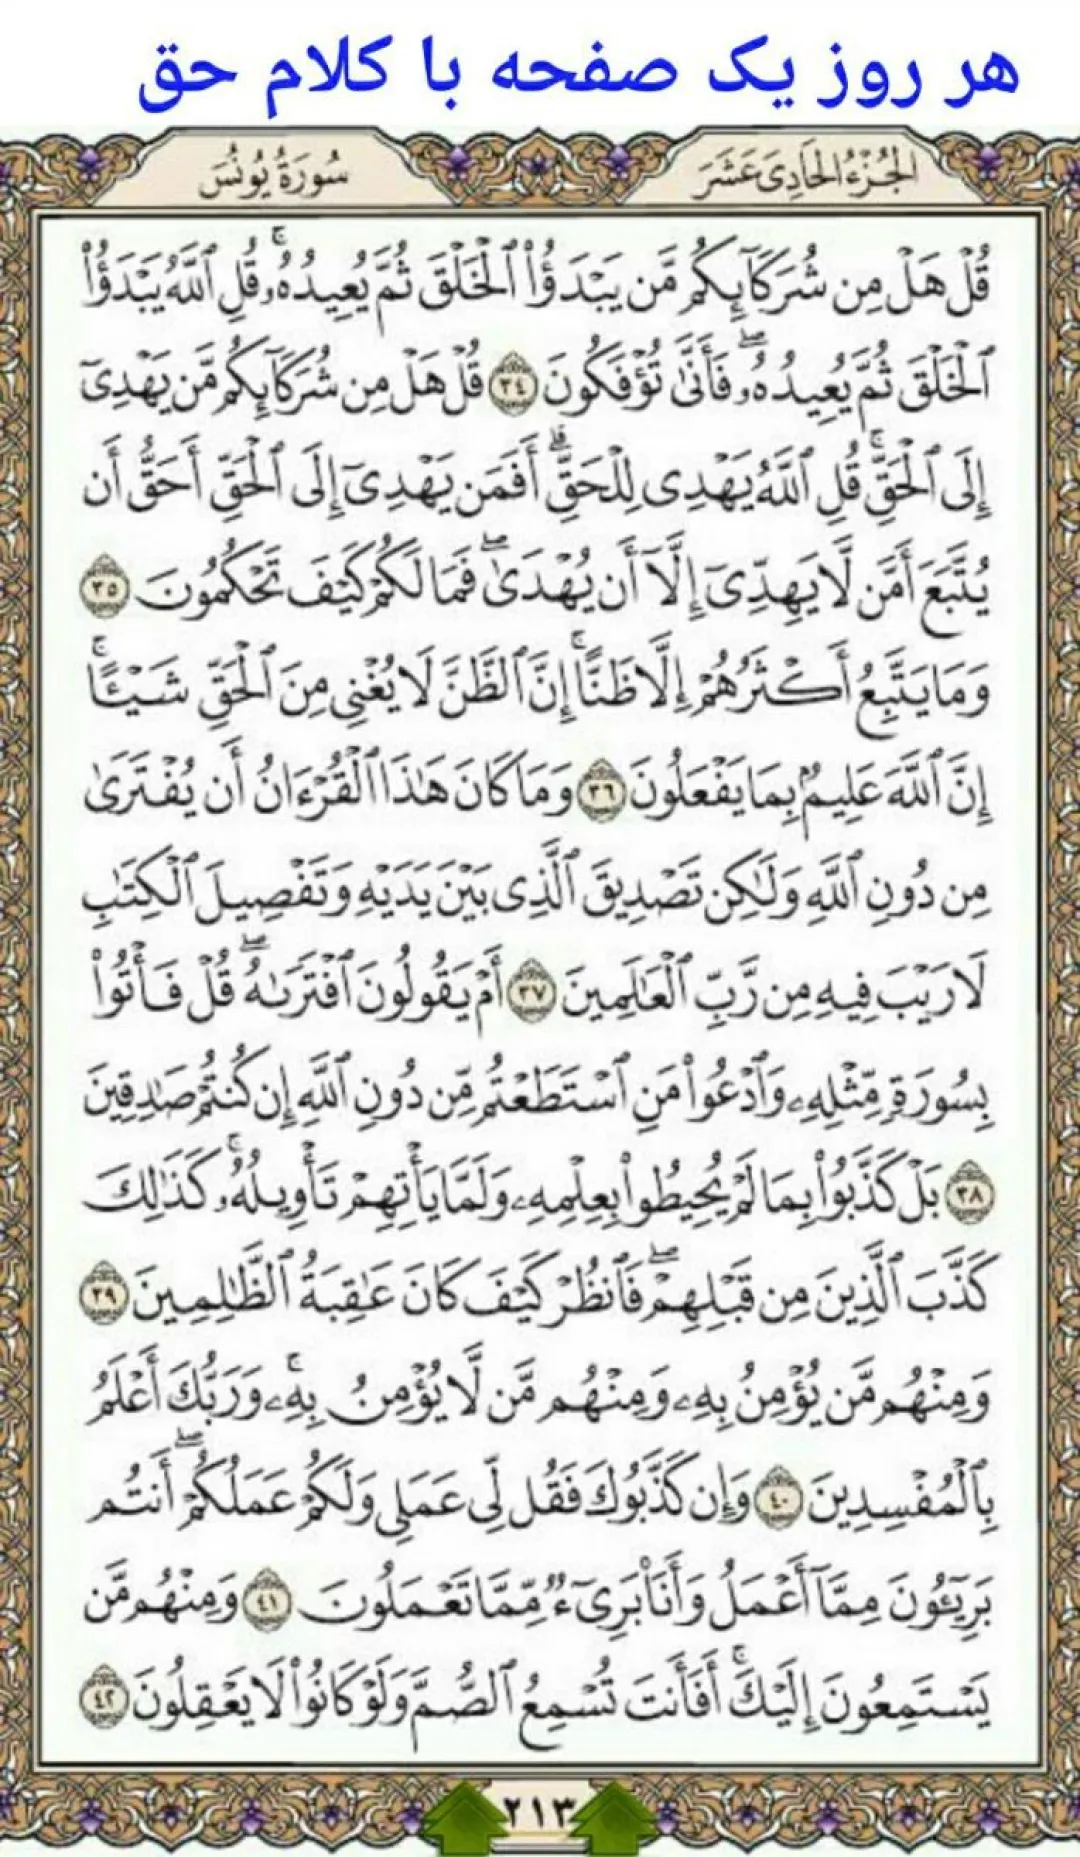 هر روز یک صفحه با کلام حق
الجُزْءُ الحَادِیَ عَشَرَ
سُورَةُ يُونُسَ
قُلْ هَلْ مِن شُرَكَآئِكُم مَّن يَبْدَؤُاْ ٱلْخَلْقَ ثُمَّ يُعِيدُهُۥۚ قُلِ ٱللَّهُ يَبْدَؤُاْ
ٱلْخَلْقَ ثُمَّ يُعِيدُهُۥۖ فَأَنَّىٰ تُؤْفَكُونَ ٣٤ قُلْ هَلْ مِن شُرَكَآئِكُم مَّن يَهْدِىٓ
إِلَى ٱلْحَقِّۚ قُلِ ٱللَّهُ يَهْدِى لِلْحَقِّۗ أَفَمَن يَهْدِىٓ إِلَى ٱلْحَقِّ أَحَقُّ أَن
يُتَّبَعَ أَمَّن لَّا يَهِدِّىٓ إِلَّآ أَن يُهْدَىٰۖ فَمَا لَكُمْ كَيْفَ تَحْكُمُونَ ٣٥
وَمَا يَتَّبِعُ أَكْثَرُهُمْ إِلَّا ظَنًّاۚ إِنَّ ٱلظَّنَّ لَا يُغْنِى مِنَ ٱلْحَقِّ شَيْـًٔاۚ
إِنَّ ٱللَّهَ عَلِيمٌۢ بِمَا يَفْعَلُونَ ٣٦ وَمَا كَانَ هَٰذَا ٱلْقُرْءَانُ أَن يُفْتَرَىٰ
مِن دُونِ ٱللَّهِ وَلَٰكِن تَصْدِيقَ ٱلَّذِى بَيْنَ يَدَيْهِ وَتَفْصِيلَ ٱلْكِتَٰبِ
لَا رَيْبَ فِيهِ مِن رَّبِّ ٱلْعَٰلَمِينَ ٣٧ أَمْ يَقُولُونَ ٱفْتَرَىٰهُۖ قُلْ فَأْتُواْ
بِسُورَةٍ مِّثْلِهِۦ وَٱدْعُواْ مَنِ ٱسْتَطَعْتُم مِّن دُونِ ٱللَّهِ إِن كُنتُمْ صَٰدِقِينَ
٣٨ بَلْ كَذَّبُواْ بِمَا لَمْ يُحِيطُواْ بِعِلْمِهِۦ وَلَمَّا يَأْتِهِمْ تَأْوِيلُهُۥۚ كَذَٰلِكَ
كَذَّبَ ٱلَّذِينَ مِن قَبْلِهِمْۖ فَٱنظُرْ كَيْفَ كَانَ عَٰقِبَةُ ٱلظَّٰلِمِينَ ٣٩
وَمِنْهُم مَّن يُؤْمِنُ بِهِۦ وَمِنْهُم مَّن لَّا يُؤْمِنُ بِهِۦۚ وَرَبُّكَ أَعْلَمُ
بِٱلْمُفْسِدِينَ ٤٠ وَإِن كَذَّبُوكَ فَقُل لِّى عَمَلِى وَلَكُمْ عَمَلُكُمْۖ أَنتُم
بَرِيٓـُٔونَ مِمَّآ أَعْمَلُ وَأَنَا۠ بَرِىٓءٌ مِّمَّا تَعْمَلُونَ ٤١ وَمِنْهُم مَّن
يَسْتَمِعُونَ إِلَيْكَۚ أَفَأَنتَ تُسْمِعُ ٱلصُّمَّ وَلَوْ كَانُواْ لَا يَعْقِلُونَ ٤٢
٢١٣